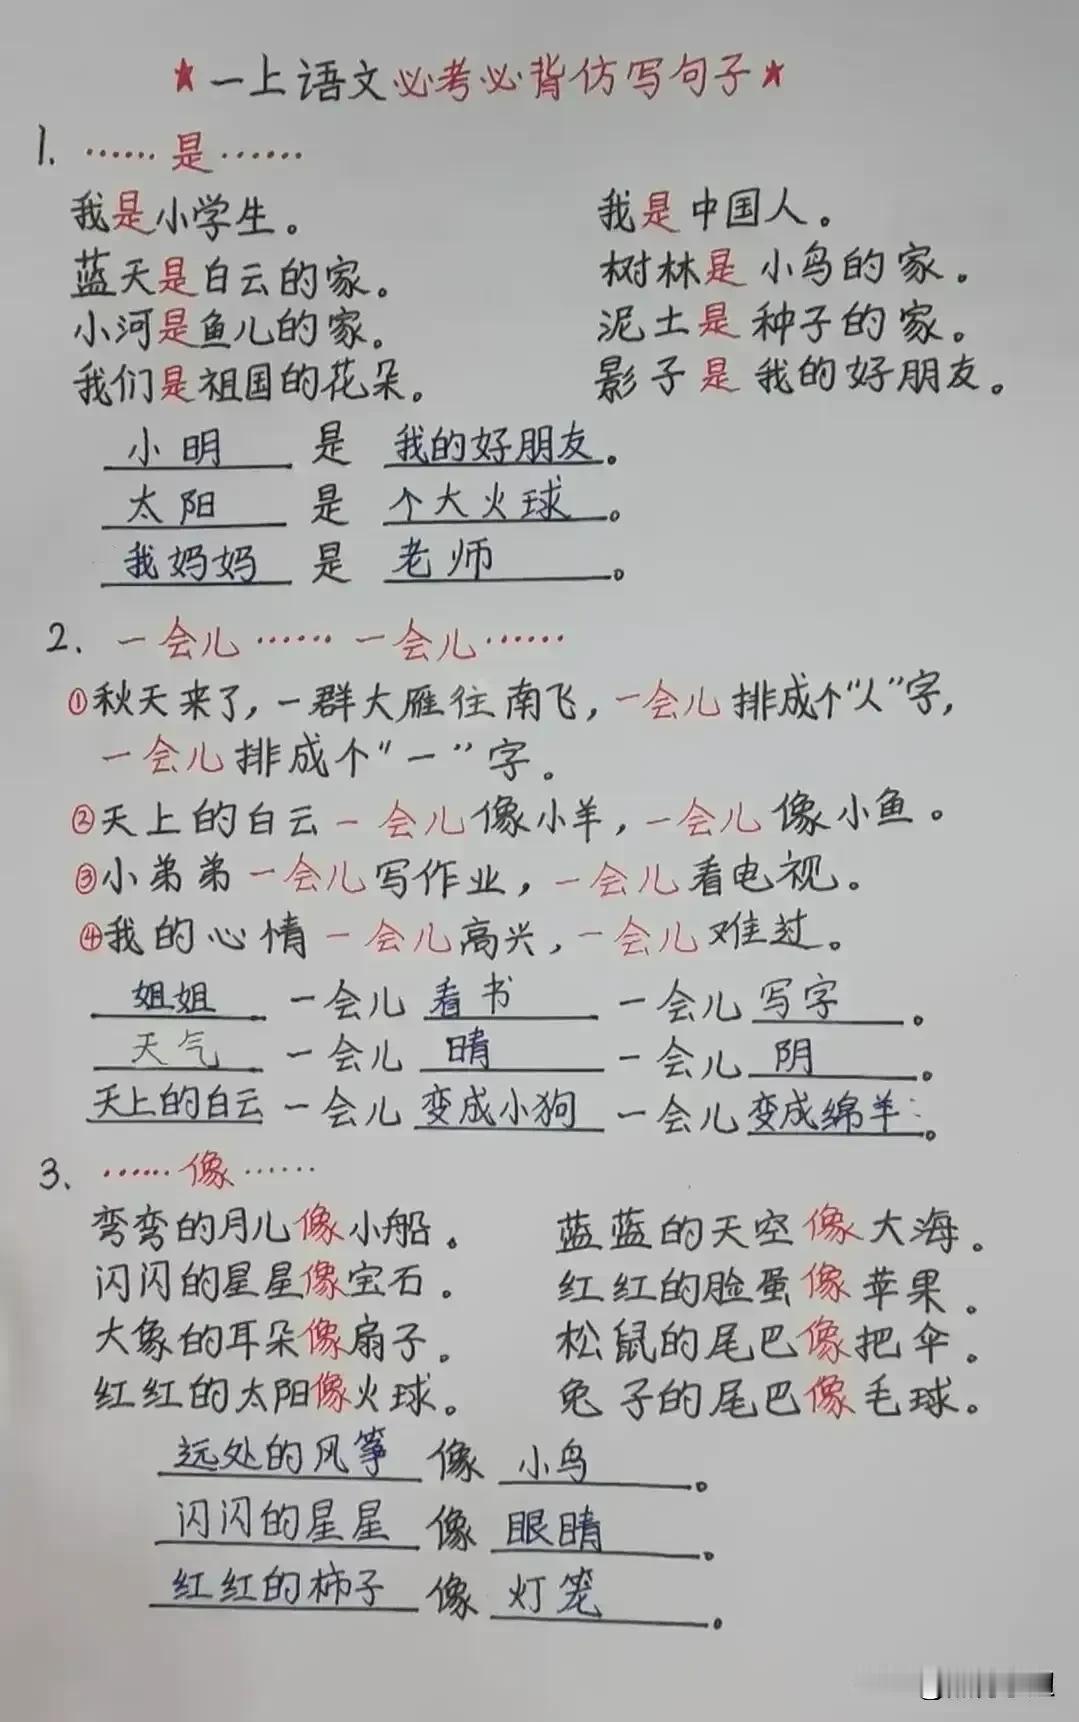 ★一上语文必考必背仿写句子★
1. ……是……
我是小学生。 我是中国人。
蓝天是白云的家。 树林是小鸟的家。
小河是鱼儿的家。 泥土是种子的家。
我们是祖国的花朵。 影子是我的好朋友。
小明 是 我的好朋友。
太阳 是 个大火球。
我妈妈 是 老师。
2. 一会儿……一会儿……
①秋天来了,一群大雁往南飞,一会儿排成个“人”字,
一会儿排成个“一”字。
②天上的白云一会儿像小羊,一会儿像小鱼。
③小弟弟一会儿写作业,一会儿看电视。
④我的心情一会儿高兴,一会儿难过。
姐姐 一会儿 看书 一会儿 写字。
天气 一会儿 晴 一会儿 阴。
天上的白云 一会儿 变成小狗 一会儿 变成绵羊。
3. ……像……
弯弯的月儿像小船。 蓝蓝的天空像大海。
闪闪的星星像宝石。 红红的脸蛋像苹果。
大象的耳朵像扇子。 松鼠的尾巴像把伞。
红红的太阳像火球。 兔子的尾巴像毛球。
远处的风筝 像 小鸟。
闪闪的星星 像 眼睛。
红红的柿子 像 灯笼。